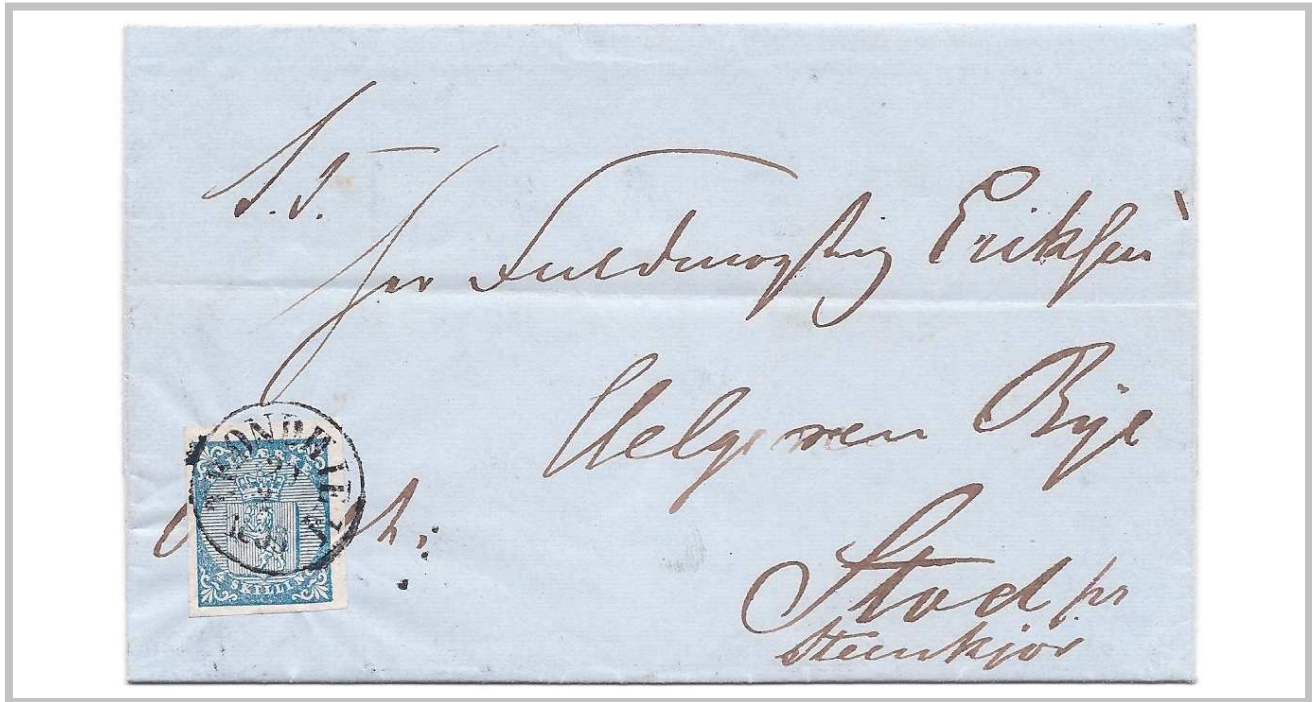 S. T.
Herr Fuldmægtig Eriksen
Helge ven Bye
Stod pr
Steenkjør
TRONDHJEM
4 SKILLING